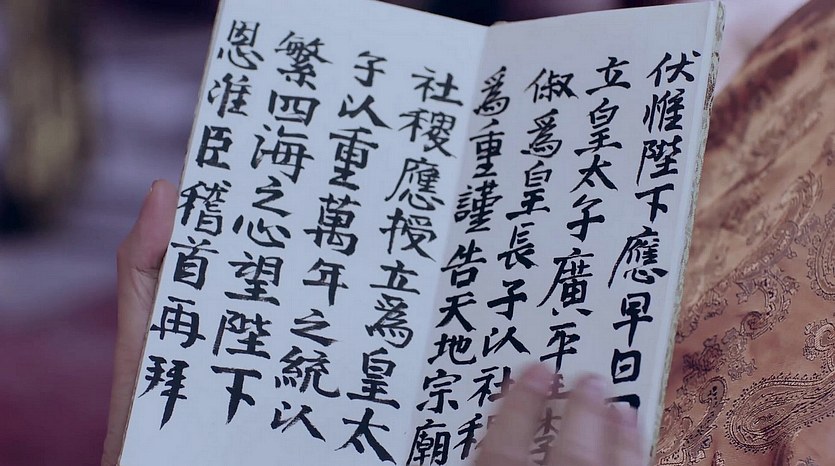 伏惟陛下應早日
立皇太子廣平王李
俶爲皇長子以社稷
爲重謹告天地宗廟
社稷應授立爲皇太
子以重萬年之統以
繁四海之心望陛下
恩准臣稽首再拜